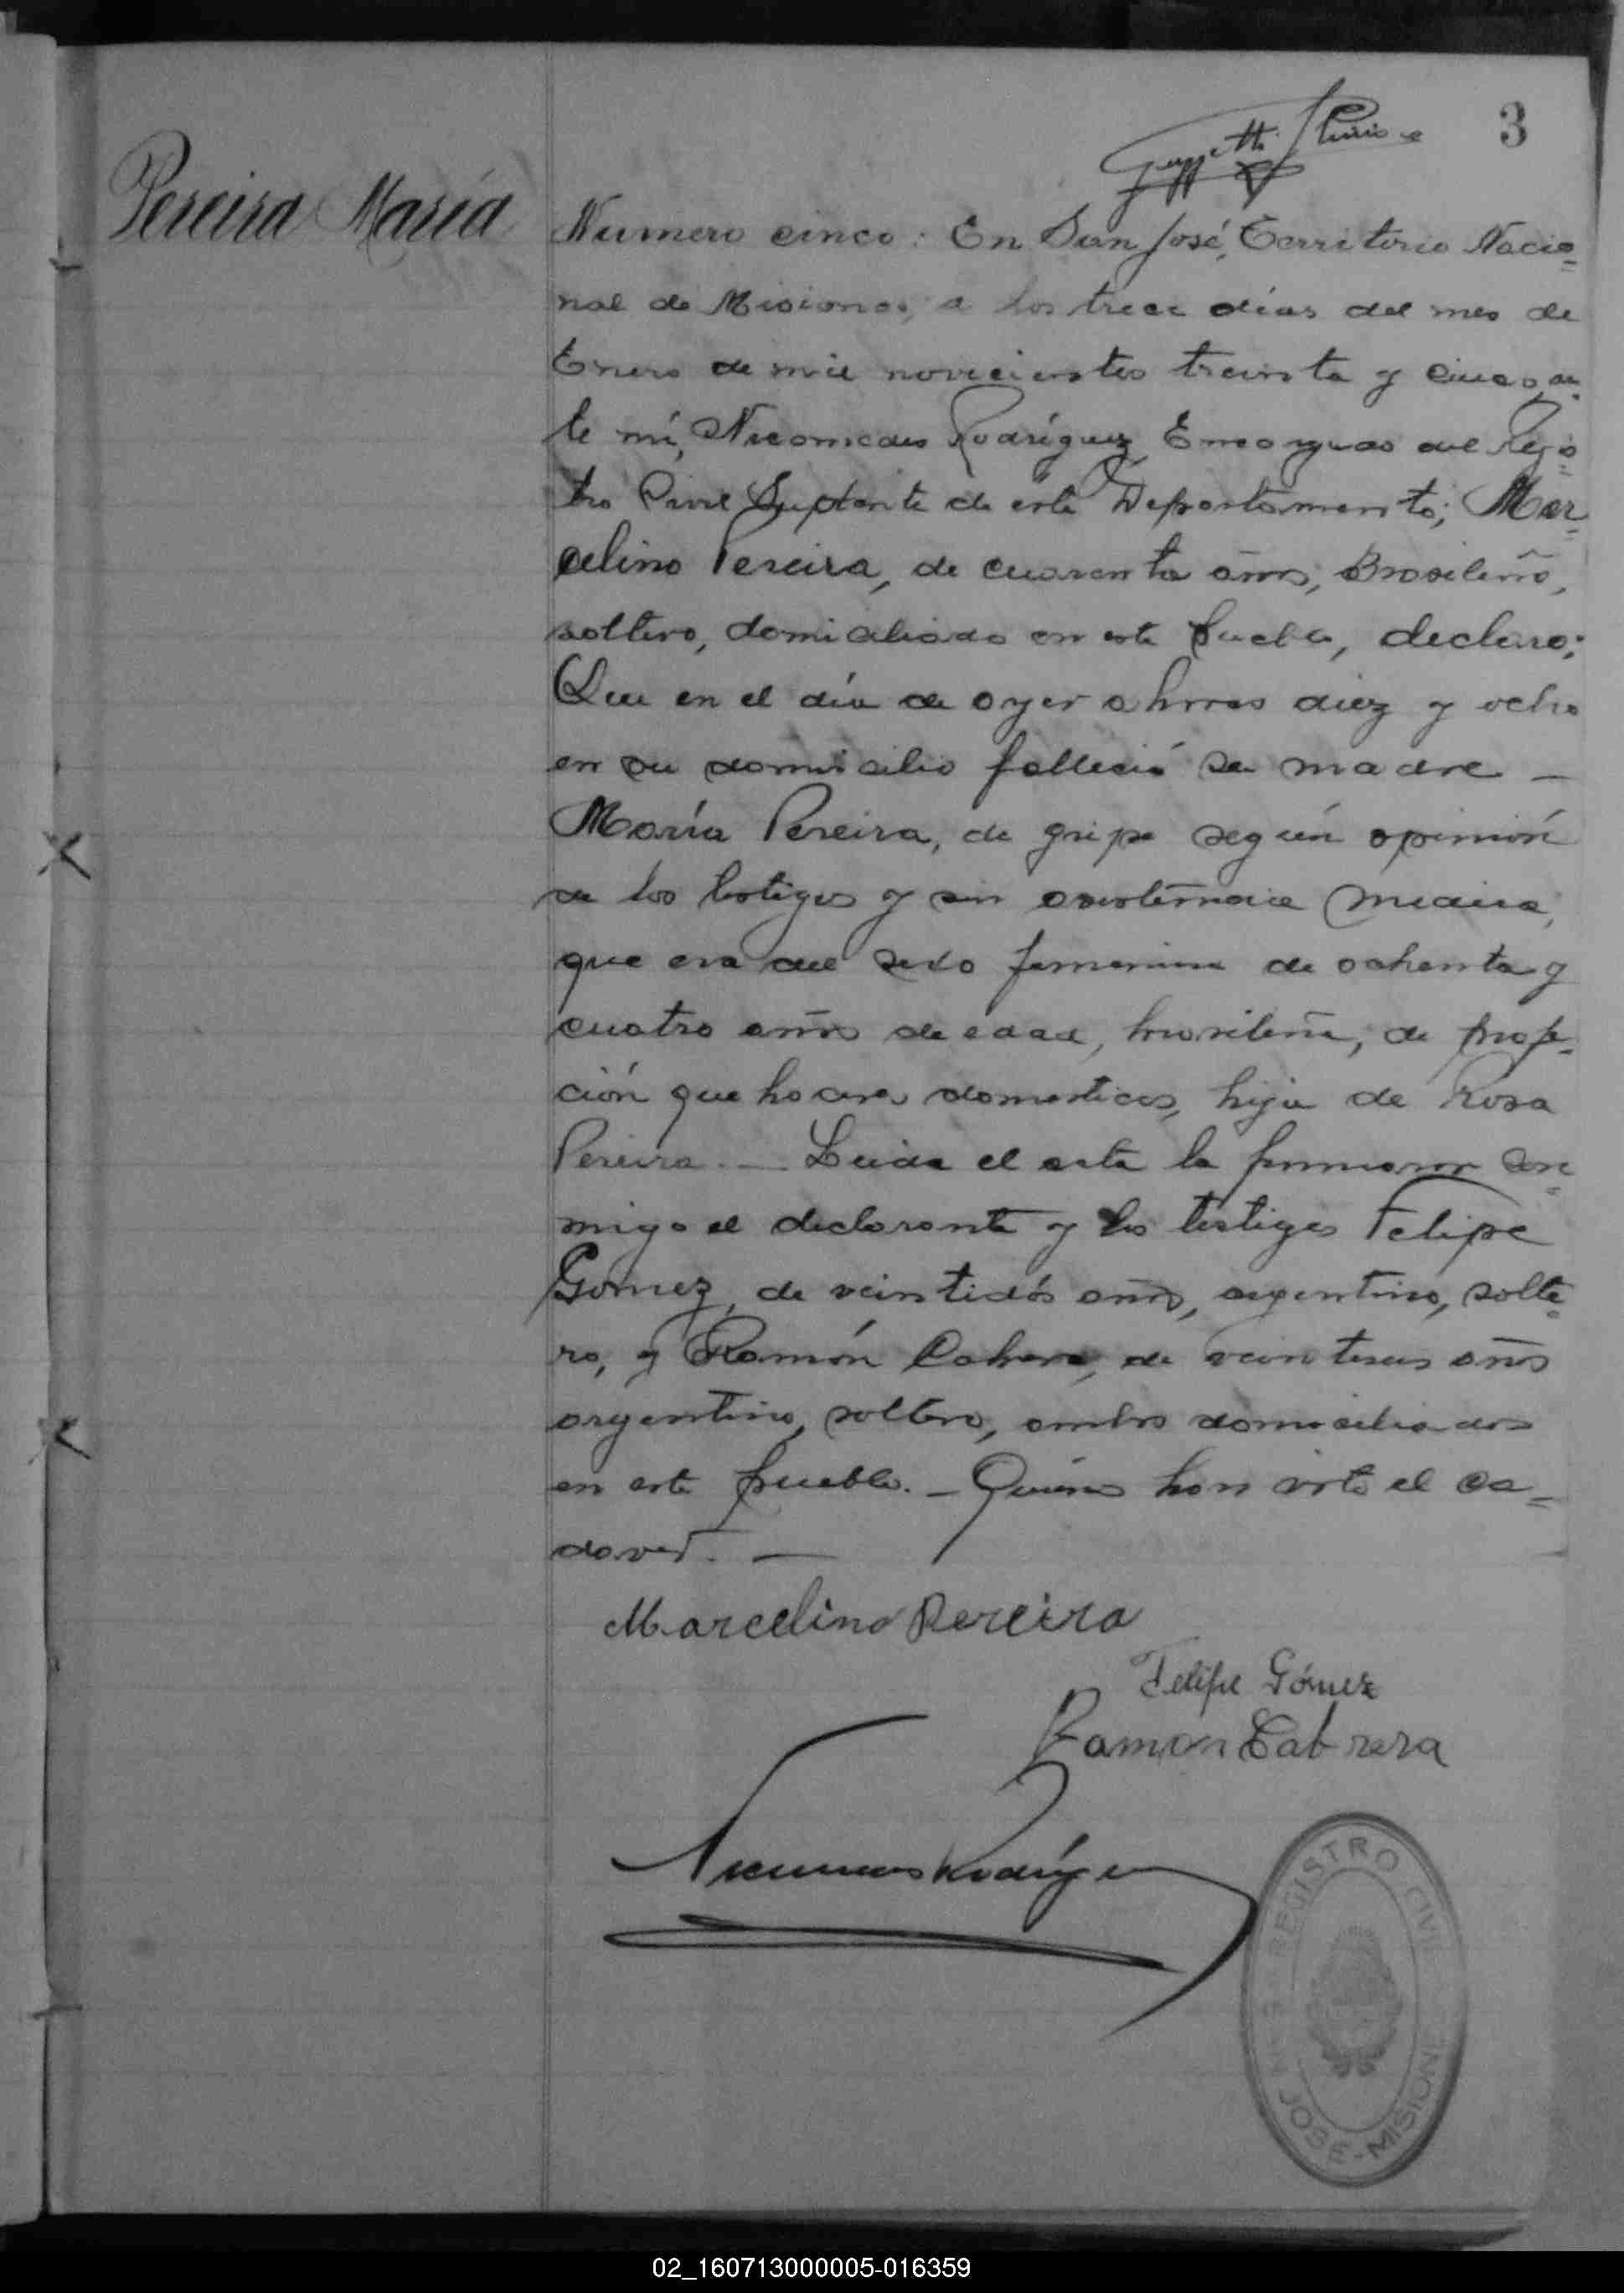 3
Pereira María
Numero cinco: En San José, Territorio Nacio=
nal de Misiones, a los trece días del mes de
Enero de mil novecientos treinta y cinco, an=
te mí, Nicomedes Rodríguez Encargado del Regis=
tro Civil Suplente de este Departamento; Mar=
celino Pereira, de cuarenta años, Brasileño,
soltero, domiciliado en este Pueblo, declaro;
Que en el día de ayer a horas diez y ocho
en su domicilio falleció su madre —
María Pereira, de gripe según opinión
de los testigos y sin medica,
que era del sexo femenino de ochenta y
cuatro años de edad, brasileña, de profe=
ción que haceres domesticos, hija de Rosa
Pereira. — Leida el acta la firmaron con=
migo el declarante y los testigos Felipe
Gomez, de veintidós años, argentino, solte=
ro, y Ramón Cabrera, de veintiseis años
argentino, soltero, ambos domiciliados
en este pueblo. — Quienes han visto el ca=
daver. —
Marcelino Pereira
Felipe Gómez
Ramon Cabrera
Nicomedes Rodríguez
REGISTRO CIVIL
SAN JOSE - MISIONES
02_160713000005-016359